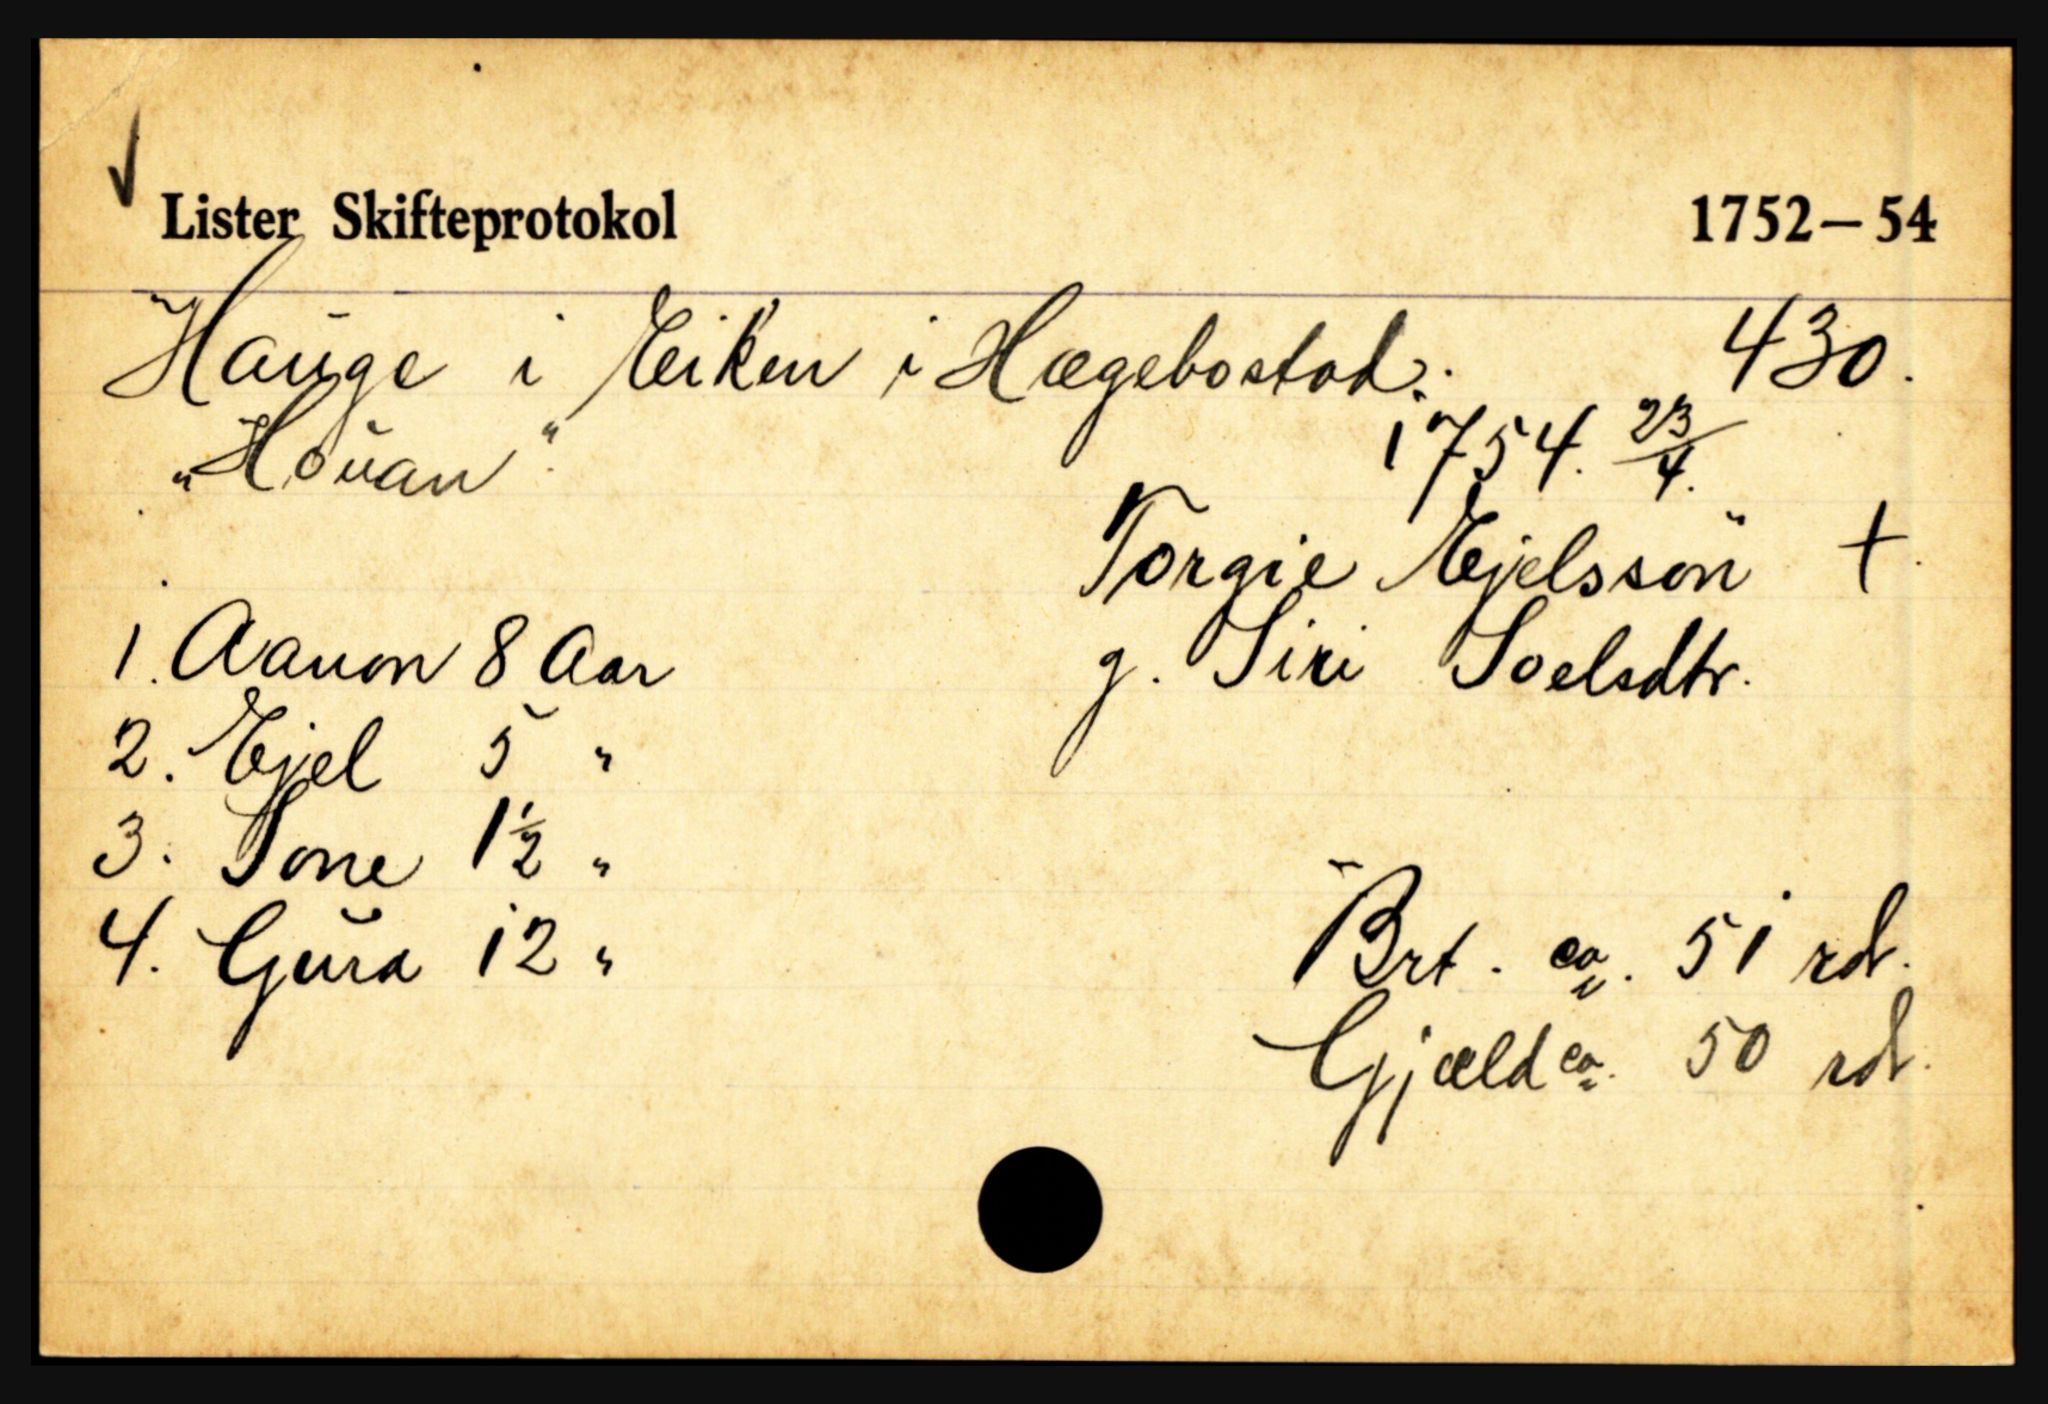 Lister Skifteprotokol 1752–54
Hauge i Eiken i Hægebostad. 430.
„Houan“. 1754. 23/4.
Torgie Ejelsson +
1. Aanon 8 Aar g. Siri Soelsdtr.
2. Ejel 5 "
3. Tone 1½ "
4. Gura 12 " Brt. ca. 51 rdl.
Gjæld ca. 50 rdl.